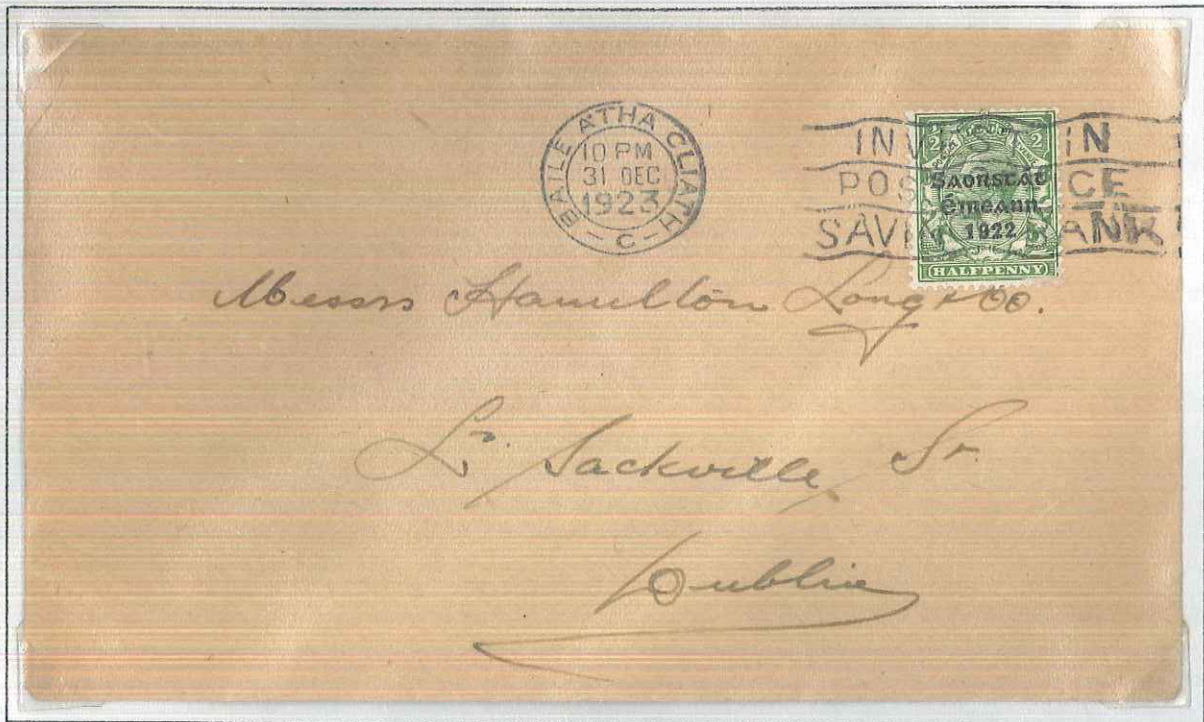 BAILE ATHA CLIATH
10 PM
31 DEC
1923
- C -
INVEST IN
POST OFFICE
SAVINGS BANK
1/2 1/2
Saorstát
Éireann
1922
HALFPENNY
Messrs Hamilton Long & Co.
Lr. Sackville St.
Dublin